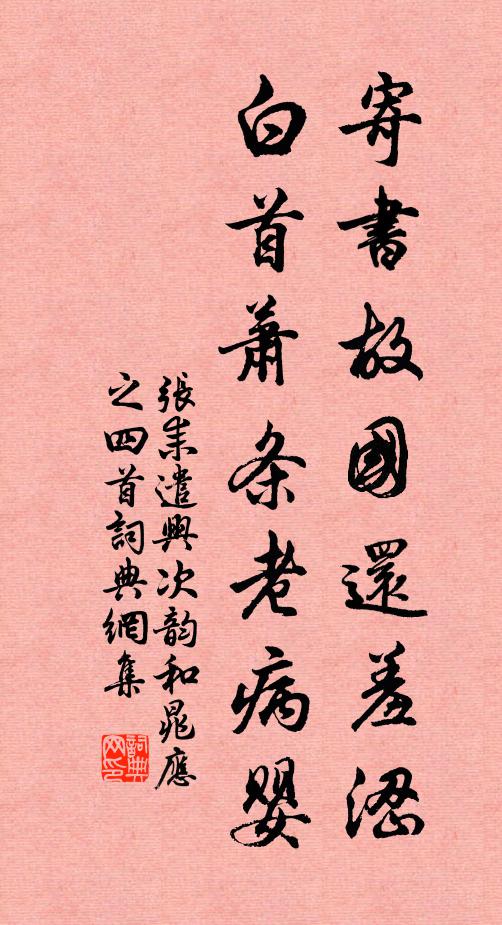 寄書故國還羞澀
白首蕭条老病嬰
張耒遣興次韵和晁應
之四首詞典網集
詞典网印